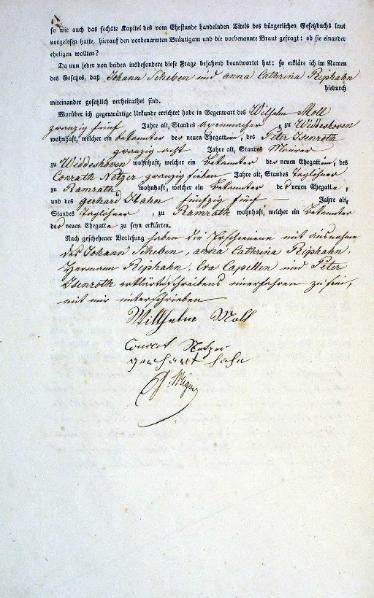 so wie auch das sechste Kapitel des vom Ehestande handelnden Titels des bürgerlichen Gesetzbuchs laut
vorgelesen hatte, hierauf den vorbenannten Bräutigam und die vorbenannte Braut gefragt: ob sie einander
ehelichen wollten?
Da nun jeder von beiden insbesondere diese Frage bejahend beantwortet hat: so erkläre ich im Namen
des Gesetzes, daß Johann Scheben und anna Catherina Riphahn
hiedurch
miteinander gesetzlich verheirathet sind.
Worüber ich gegenwärtige Urkunde errichtet habe in Gegenwart des Wilhelm Moll
zwanzig fünf Jahre alt, Standes zu Widdeshoven
wohnhaft, welcher ein bekannter des neuen Ehegatten, des Peter Isenroth
zwanzig acht Jahre alt, Standes Maurer
zu Widdeshoven wohnhaft, welcher ein bekannter des neuen Ehegatten, des
Conrath Netzer zwanzig sieben Jahre alt, Standes Taglöhner
zu Ramrath wohnhaft, welcher ein bekannter des neuen Ehegatten,
und des gerhard Hahn fünfzig fünf Jahre alt,
Standes Taglöhner, zu Ramrath wohnhaft, welcher ein bekannter
des neuen Ehegatten zu seyn erklärten.
Nach geschehener Vorlesung haben die mit ausnahme
des Johann Scheben, anna Catherina Riphahn,
Hermann Riphahn, Eva Capellen und Peter
Isenroth schreibens unerfahren zu sein,
mit mir unterschrieben
Willhelm Moll
Conrat Netzer
gerhart hahn